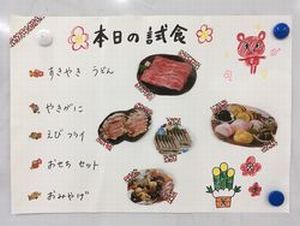 本日の試食
すきやき うどん
やきがに
えび フライ
おせち セット
おみやげ